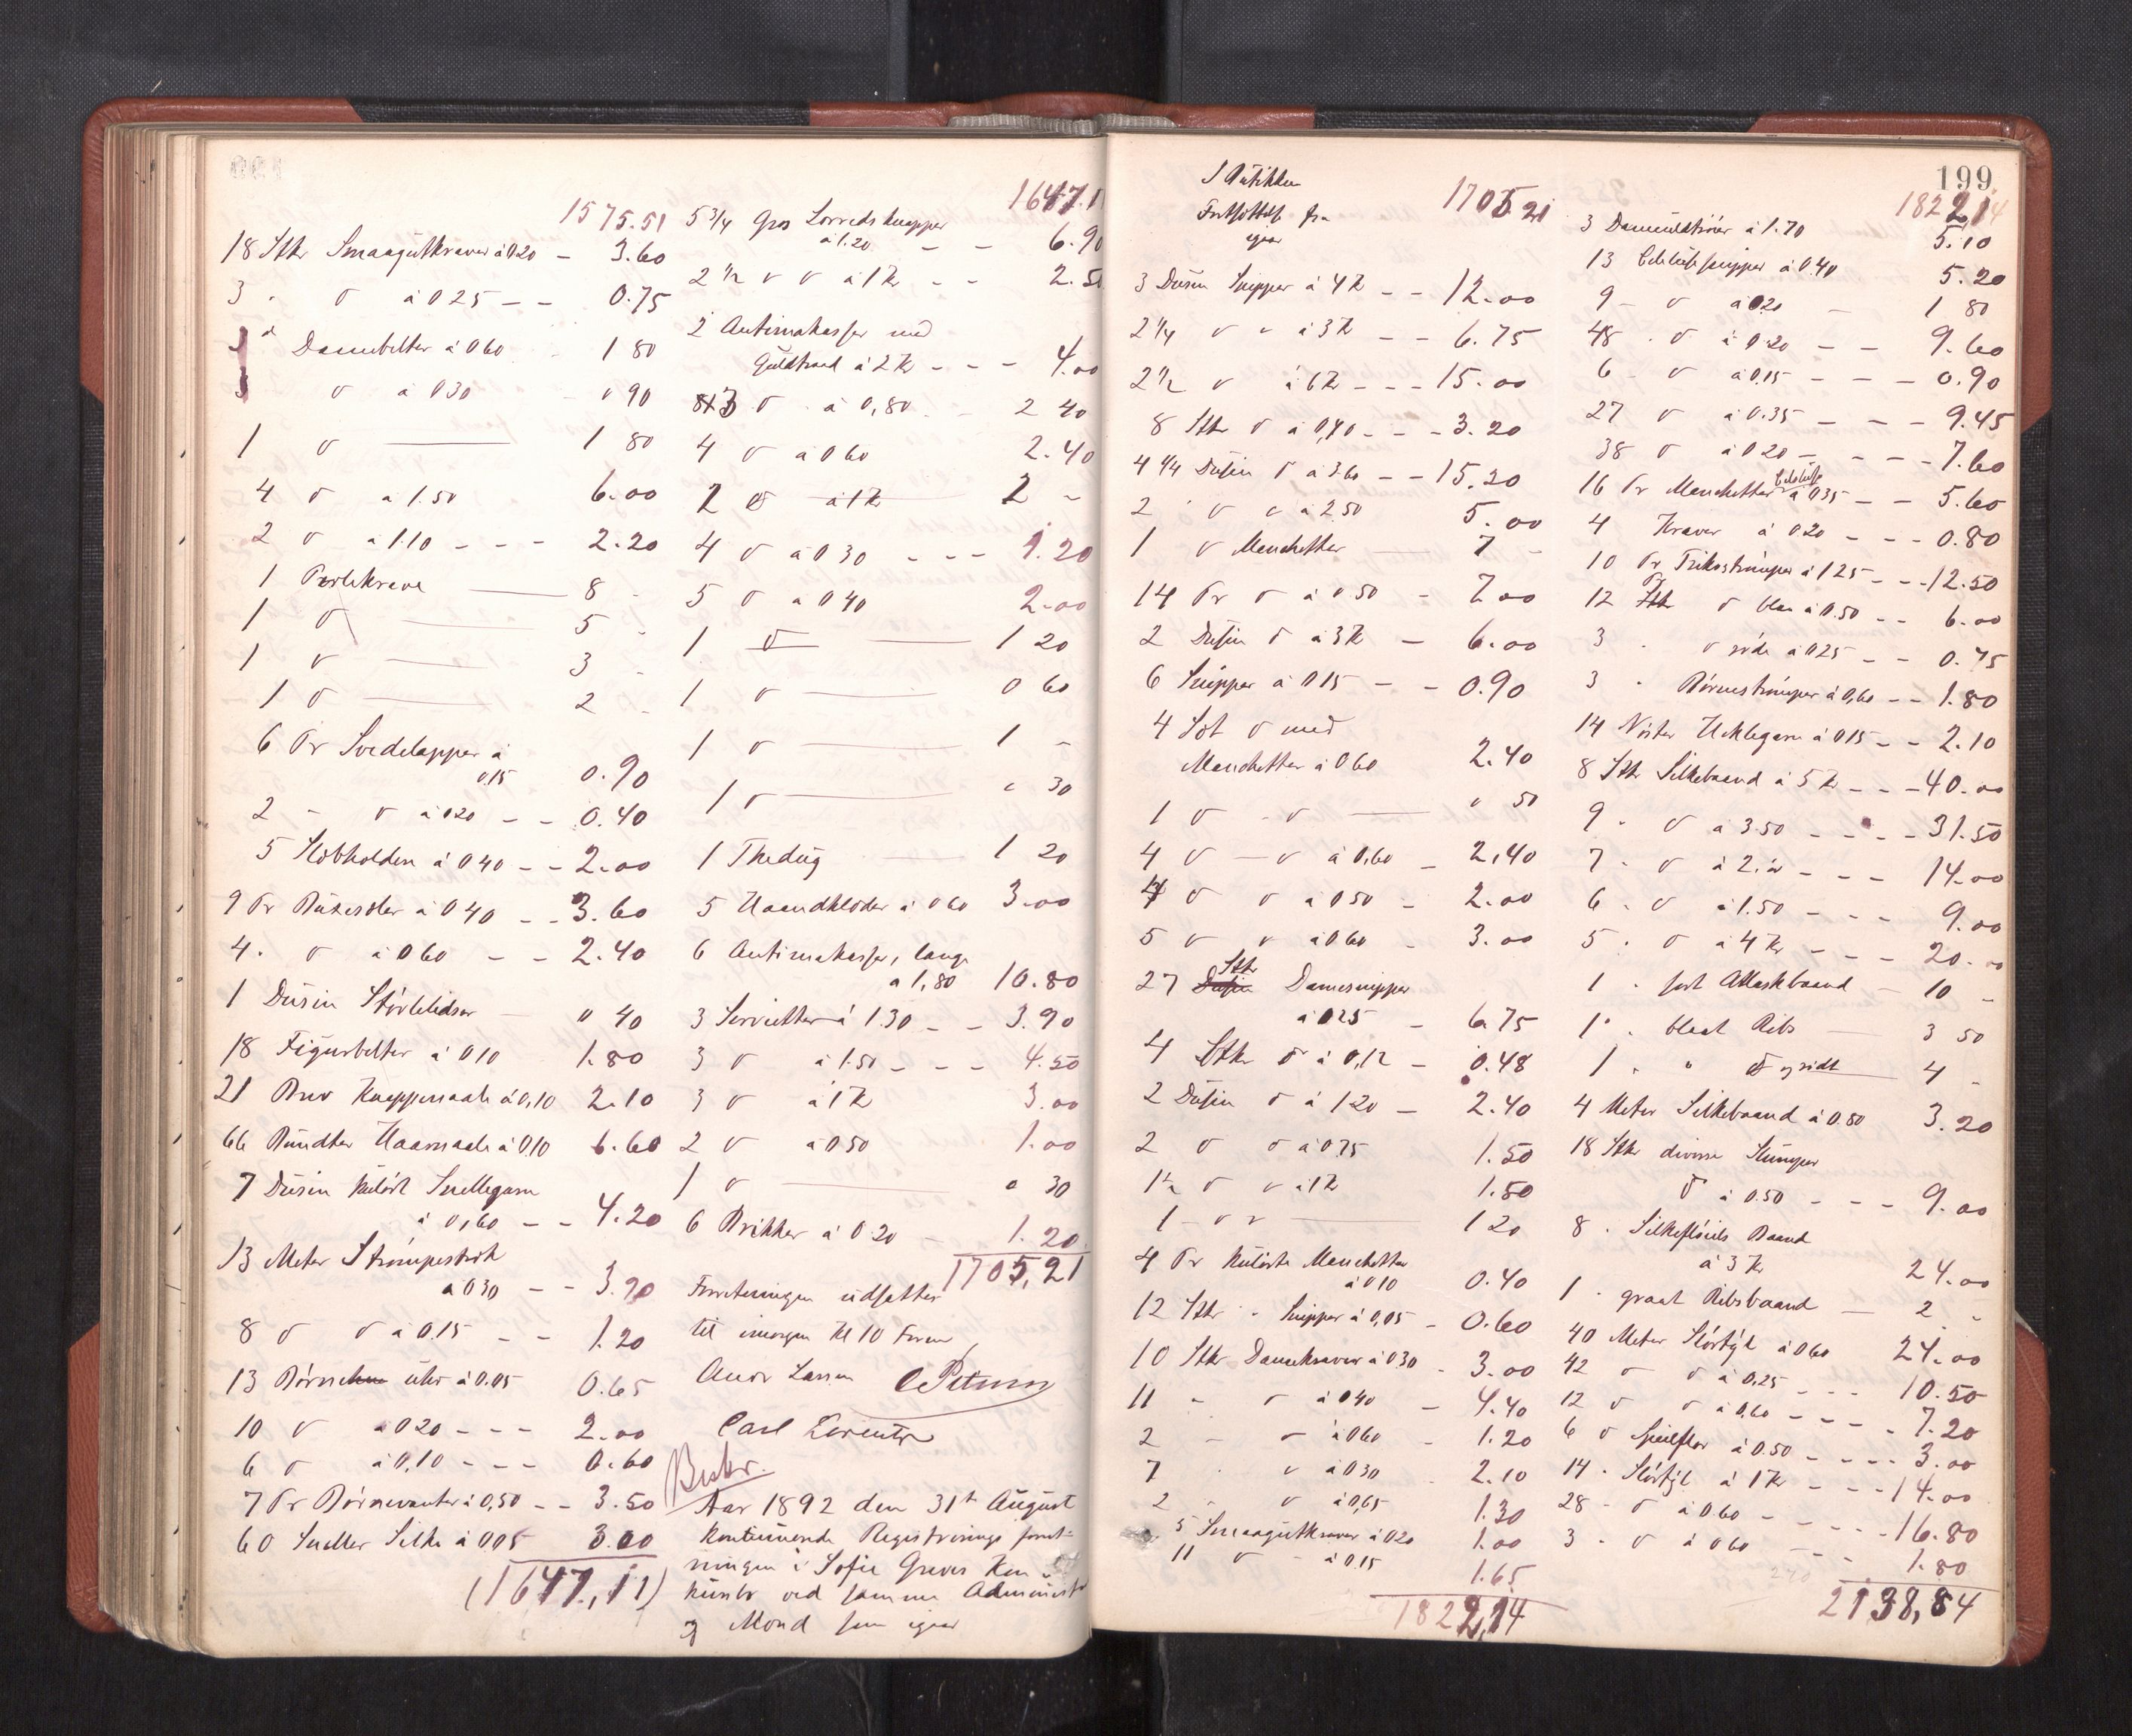 1575.51
18 Stk Smaagutkraver à 0.20 – 3.60
3 " d à 0.25 – – 0.75
3 d Damebelter à 0.60 1 80
3 d à 0.30 " 90
1 d 1 80
4 d à 1.50 6.00
2 d à 1.10 – – – 2.20
1 Perlekrave 8 –
1 d 5 –
1 d 3 –
1 d 2 –
6 Pr Svedelapper à
0.15 0.90
2 – d à 0.20 – – 0.40
5 Slobholdere à 0.40 – – 2.00
9 Pr à 0.40 – – 3.60
4 " d à 0.60 – – 2.40
1 Dusin Støvlelidser – " 40
18 Figurbelter à 0.10 1.80
21 Brev Knappenaale à 0,10 2.10
66 Bundter Haarnaale à 0.10 6.60
7 Dusin kulørt Snellegarn
à 0,60 – – 4.20
13 Meter
à 0.30 – – 3.90
8 d d à 0.15 – – 1.20
13 Børne uhr à 0.05 0.65
10 d à 0.20 – – – 2.00
6 d à 0,10 – – – 0.60
7 Pr Børnevanter à 0,50 – – 3.50
60 Sneller Silke à 0.05 3.00
(1647,11)
1647.1
5 3/4 Gros Lorredsknapper
à 1.20 – – 6.90
2 1/2 d d à 1 Kr – – 2.50
2 Antimakasser med
Guldtraad à 2 Kr – – – 4.00
3 d à 0,80 – 2 40
4 d à 0.60 2.40
2 d à 1 Kr 2 –
4 d à 0.30 – – – 1.20
5 d à 0.40 2.00
1 d 1 20
1 d 0 60
1 d 1 –
1 d " 30
1 Thedug 1 20
5 Haandklæder à 0.60 3.00
6 Antimakasser, lange
à 1,80 10.80
3 Servietter à 1.30 – – 3.90
3 d à 1.50 – – – 4.50
3 d à 1 Kr 3.00
2 d à 0.50 1.00
1 d " 30
6 Brikker à 0.20 – 1.20
1705,21
Forretningen udsattes
til imorgen Kl 10 Form
Larsen
Carl Lorentz
Beskr.
Aar 1892 den 31te August
kontinuerede Registrerings forret-
ningen i Sofie Greves Kon-
kursbo ved samme Administr
og Mænd som igaar
199
I Butikken
Fortsættelse fra
igaar
1705.21
3 Dusin Snipper à 4 Kr – – 12.00
2 1/4 d " à 3 Kr – – 6.75
2 1/2 d à 6 Kr – – – 15.00
8 Stk d à 0,40 – – – 3.20
4 1/4 Dusin d à 3.60 – – 15.30
2 " d d à 2.50 5.00
1 d Manchetter 7 –
14 Pr d à 0.50 – 7.00
2 Dusin d à 3 Kr – 6.00
6 Snipper à 0.15 – – 0.90
4 Sæt d med
Manchetter à 0.60 2.40
1 d – d " 50
4 d – d à 0,60 – 2,40
4 d d à 0.50 – 2.00
5 d d à 0.60 – 3.00
27 Stk Damesnipper
à 0.25 – 6.75
4 Stk d à 0,12 – 0.48
2 Dusin d à 1.20 – 2.40
2 d d à 0.75 1.50
1 1/2 d d à 1 Kr 1.50
1 – d d 1 20
4 Pr kulørte Manchetter
à 0.10 0.40
12 Stk " Snipper à 0,05 – 0.60
10 Stk Damekraver à 0.30 – 3.00
11 – d à 0.40 – 4.40
2 – d à 0.60 – 1.20
7 " d à 0.30 – 2.10
2 " d à 0,65 1.30
5 Smaagutkraver à 0.20 1.00
11 d – à 0.15 1.65
1822,14
1822.14
3 à 1.70 5.10
13 à 0.40 5.20
9 – d à 0.20 – 1 80
48 " d à 0.20 – – 9.60
6 – d à 0.15 – – – 0.90
27 d à 0.35 – – – 9.45
38 d à 0.20 – – – – 7.60
16 Pr Manchetter à 0.35 – – 5.60
4 Kraver à 0.20 – – – 0.80
10 Pr Trikostrømper à 1.25 – – – 12.50
12 Pr d blaa à 0.50 – – 6.00
3 " d røde à 0.25 – – 0.75
3 " Børnestrømper à 0,60 – – 1.80
14 Nøster Heklegarn à 0.15 – – 2.10
8 Stk Silkebaand à 5 Kr – – – 40.00
9 " d à 3.50 – – – – 31.50
7 " d à 2.00 – – – 14.00
6 " d à 1.50 – – – 9.00
5 " d à 4 Kr – – – 20.00
1 " sort Atlaskbaand – 10 –
1 " blaat Ribs 3 50
1 " " d 4 –
4 Meter Silkebaand à 0.80 3.20
18 Stk diverse Stumper
d à 0.50 – – – 9.00
8 " Silkefløiels Baand
à 3 Kr 24.00
1 " graat Ribsbaand – 2 "
40 Meter Slørtyl à 0.60 24.00
42 d d à 0,25 – – – 10.50
12 d d à 0,60 – – – – 7.20
6 d à 0.50 – – – – 3.00
14 " Slørtyl à 1 Kr – – – 14.00
28 – d à 0.60 – – – – – 16.80
3 " d à 0.60 – – – 1.80
2138,84